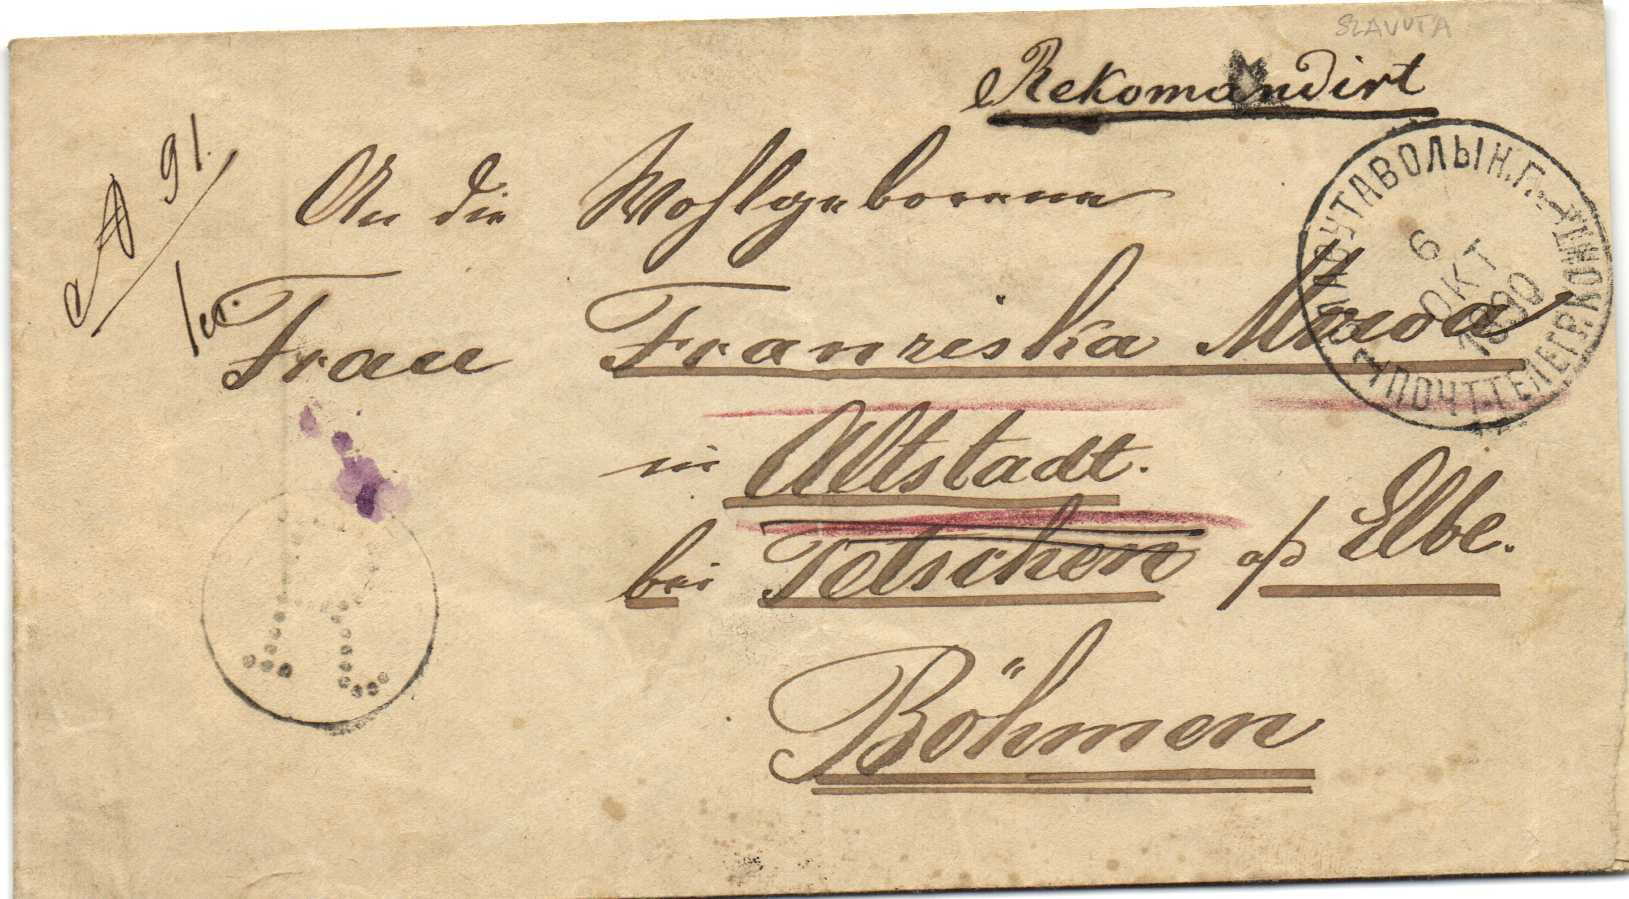 SZAVUTA
Rekomandirt
91.
An die Wohlgeborene
Frau Franziska
in Altstadt.
bei Tetschen a/d Elbe.
Böhmen
СЛАВУТА ВОЛЫН. Г.
6
ОКТ
1890
ПОЧТ. ТЕЛЕГР. КОНТ.